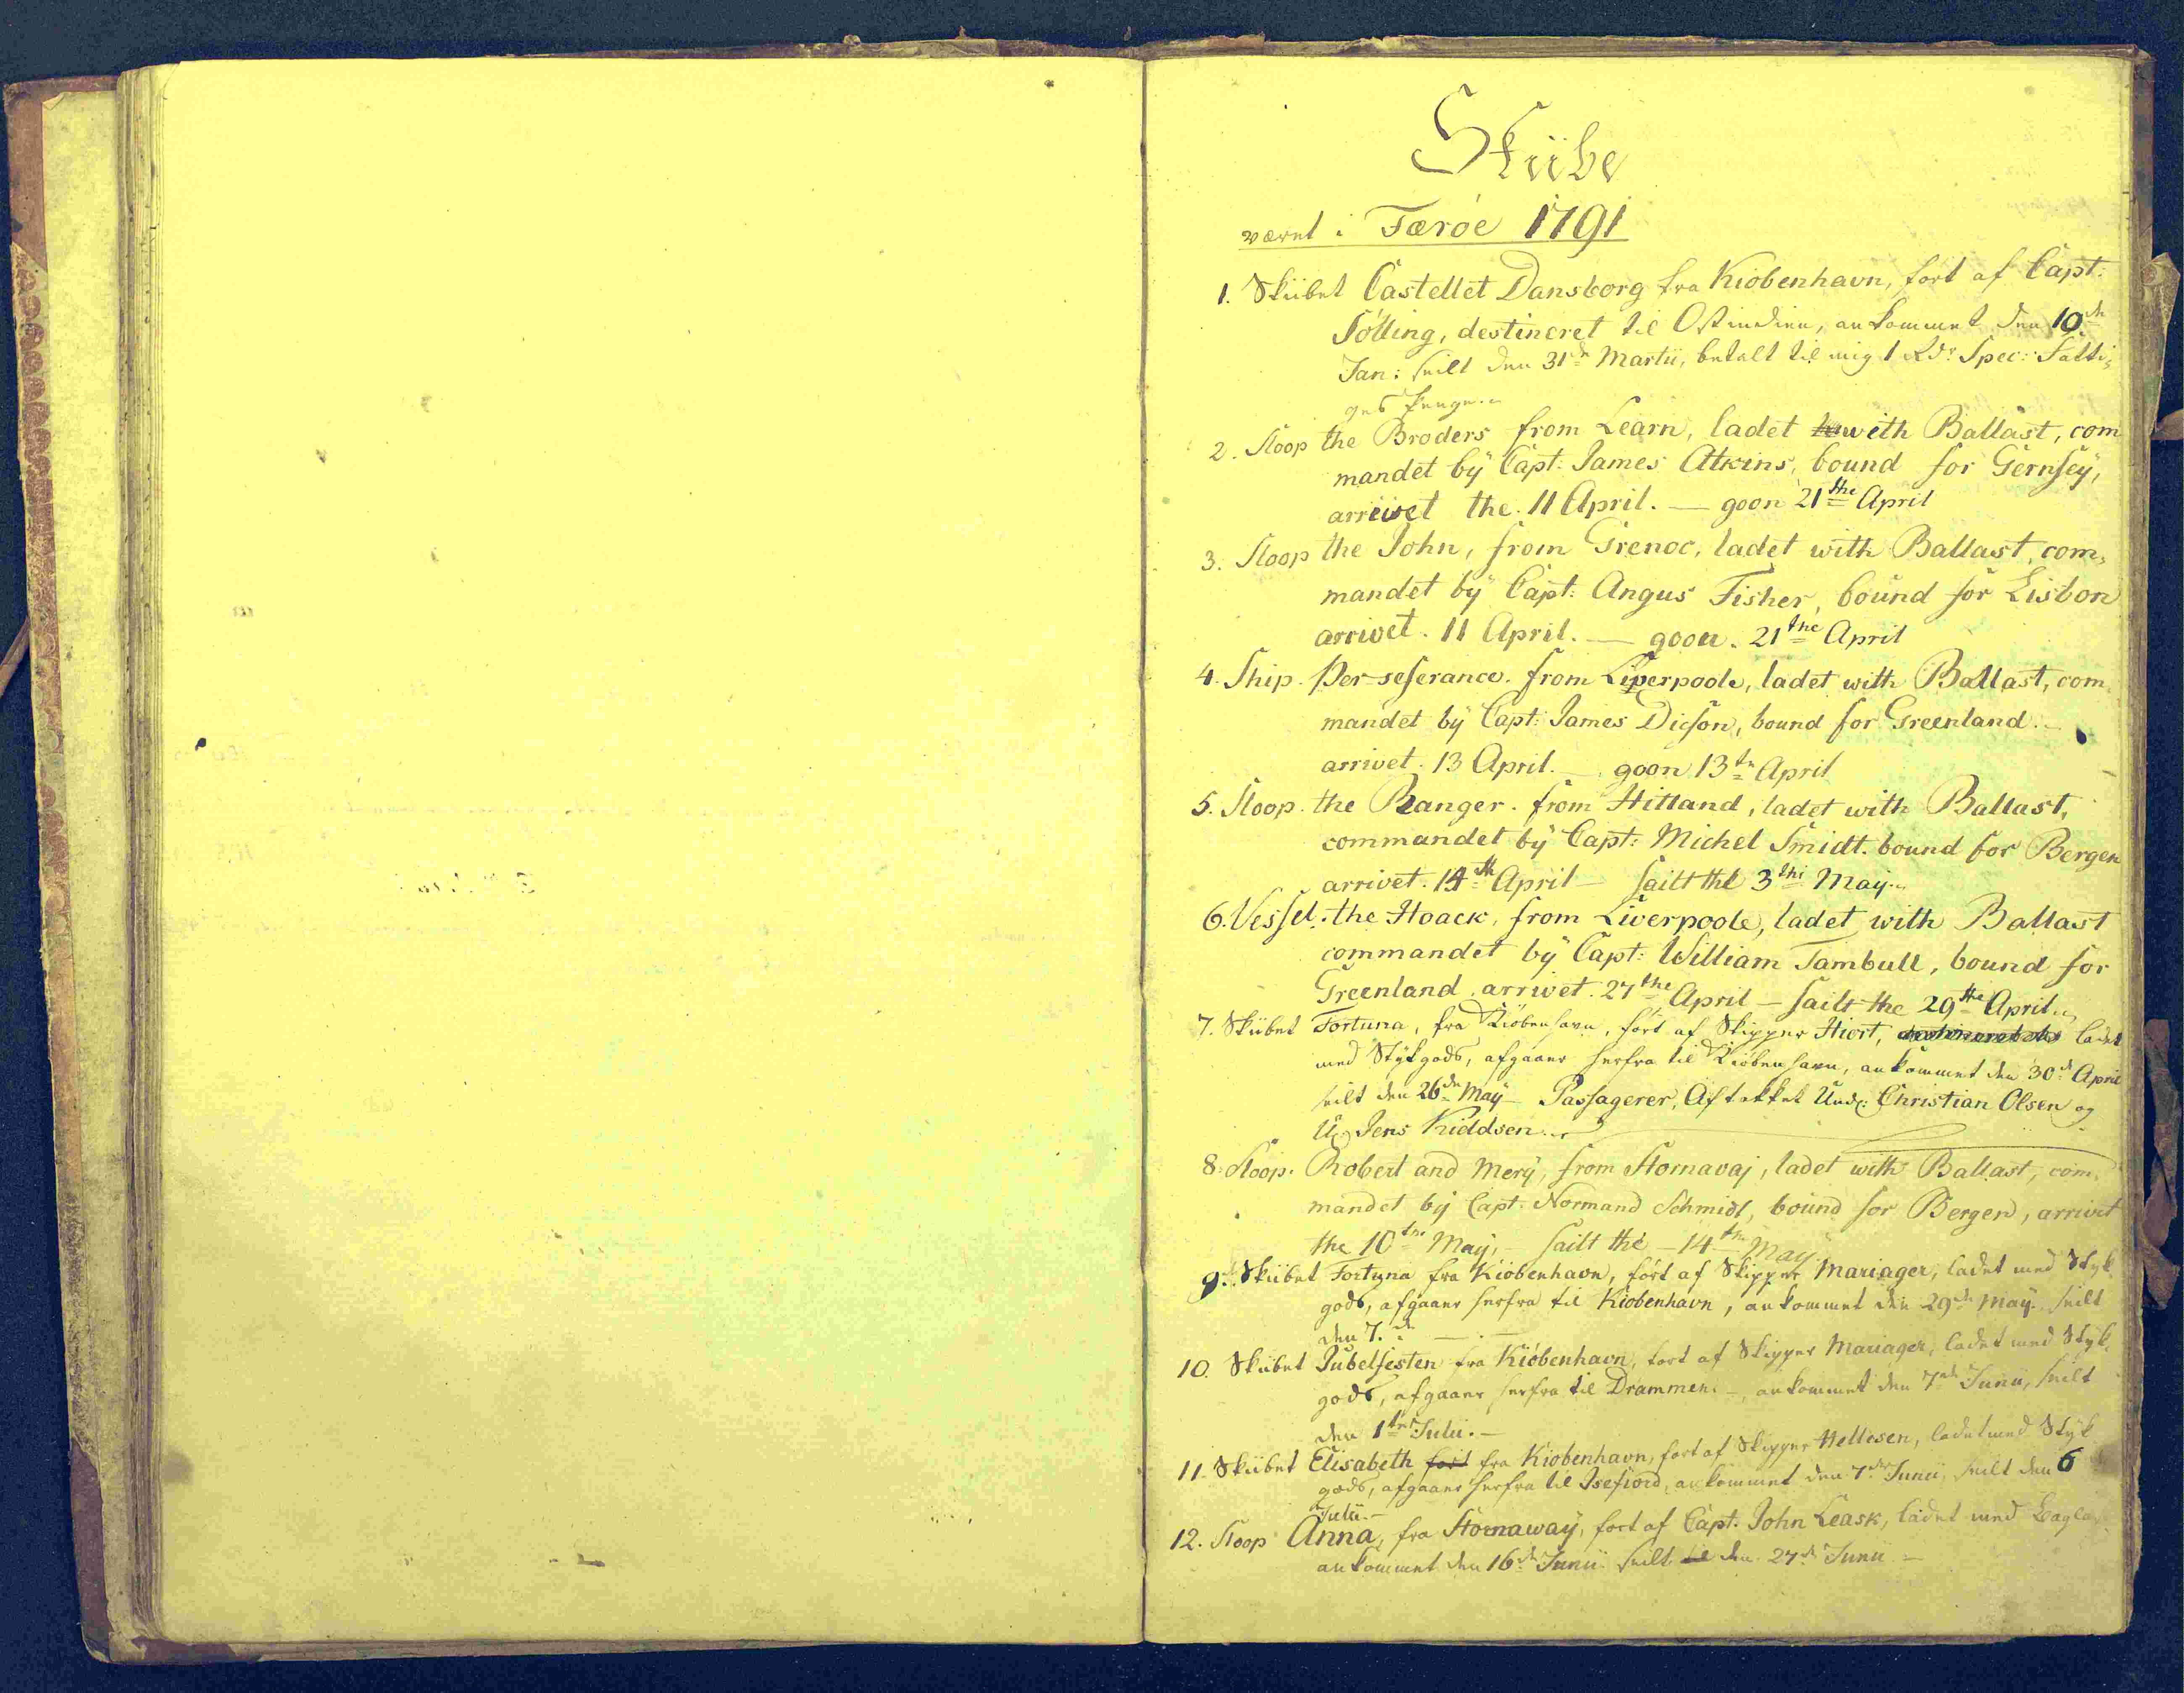 Skibe
været i Færøe 1791
1. Skibet Castellet Dansborg fra Kiøbenhavn, ført af Capt:
Sölling, destineret til Ostindien, ankommet den 10de
Jan: seilt den 31de Martii, betalt til mig 1 Rdr Spec: Fatti-
ges Penge.
2. Sloop the Broders from Learn, ladet with Ballast, com
mandet by Capt: James Atkins, bound for Gernsey,
arrivet the 11 April. — goon 21the April
3. Sloop the John, from Grenoc, ladet with Ballast, com,
mandet by Capt: Angus Fisher, bound for Lisbon
arrivet. 11 April. — goon. 21the April
4. Ship. Per-seserance. from Liperpoole, ladet with Ballast, com,
mandet by Capt: James Dicson, bound for Greenland. —
arrivet. 13 April. — goon 13th April
5. Sloop. the Ranger. from Hitland, ladet with Ballast,
commandet by Capt: Michel Smidt. bound for Bergen
arrivet. 14th April — sailt the 3the May.
6. Vessel. the Hoack, from Liverpoole, ladet with Ballast
commandet by Capt: William Tambull, bound for
Greenland, arrivet. 27the April — sailt the 29the April.
7. Skibet Fortuna, fra Kiøbenhavn, ført af Skipper Hiort, ladet
med Stykgods, afgaaer herfra til Kiøbenhavn, ankommet den 30de April
seilt den 26de May — Passagerer, Aftakket Undc: Christian Olsen og
Uc Jens Kiddsen.
8. Sloop. Robert and Mery, from Stornavaj, ladet with Ballast, com,
mandet by Capt. Normand Schmidt, bound for Bergen, arrivet
the 10the May, — sailt the — 14th May.
9. Skibet Fortuna fra Kiøbenhavn, ført af Skipper Mariager, ladet med Styk
gods, afgaaer herfra til Kiøbenhavn, ankommet den 29de May. seilt
den 7.de —
10. Skibet Jubelfesten fra Kiøbenhavn, ført af Skipper Mariager, ladet med Styk,
gods, afgaaer herfra til Drammen. —, ankommet den 7de Junii, seilt
den 1ste Julii. —
11. Skibet Elisabeth fört fra Kiobenhavn, ført af Skipper Hellesen, ladet med Styk
gods, afgaaer herfra til Isefiord, ankommet den 7de Junii, seilt den 6
Julii. —
12. Sloop Anna, fra Stornaway, ført af Capt. John Leask, ladet med
ankommet den 16de Junii. seilt til den. 27de Junii —